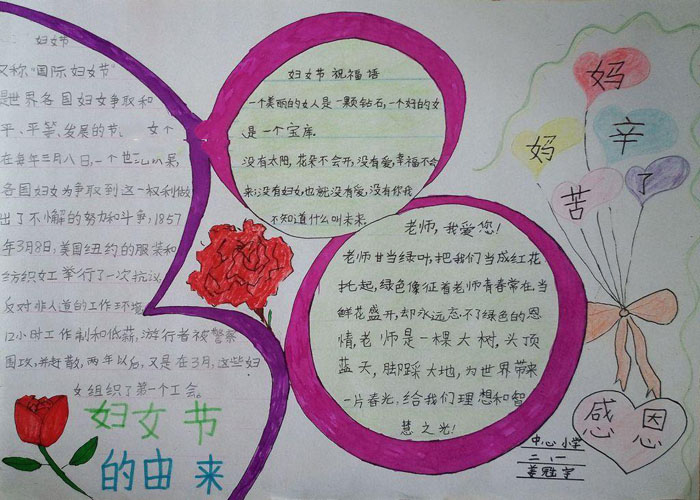 妇女节
又称"国际妇女节"
是世界各国妇女争取和
平、平等、发展的节、
在每年三月八日,一个世
各国妇女为争取到这一权利做
出了不懈的努力和斗争,1857
年3月8号,美国纽约的服装和
纺织女工举行了一次抗议
反对非人道的工作环境
12小时工作制和低薪,游行者被警察
围攻,并赶散,两年以后,又是在3月,这些妇
女组织了第一个工会。
妇女节
的由来
妇女节祝福语
一个美丽的女人是一颗钻石,一个好的女
是一个宝库.
没有太阳,花朵不会开,没有爱,幸福不会
来;没有妇女也就没有爱,没有你我
不知道什么叫未来
老师,我爱您!
老师甘当绿叶,把我们当成红花
托起,绿色像征着老师青春常在,当
鲜花盛开,却永远忘不了绿色的恩
情,老师是一棵大树,头顶
蓝天,脚踩大地,为世界带来
一片春光,给我们理想和智
慧之光!
妈
妈
辛
苦
了
感恩
中心小学
二、一